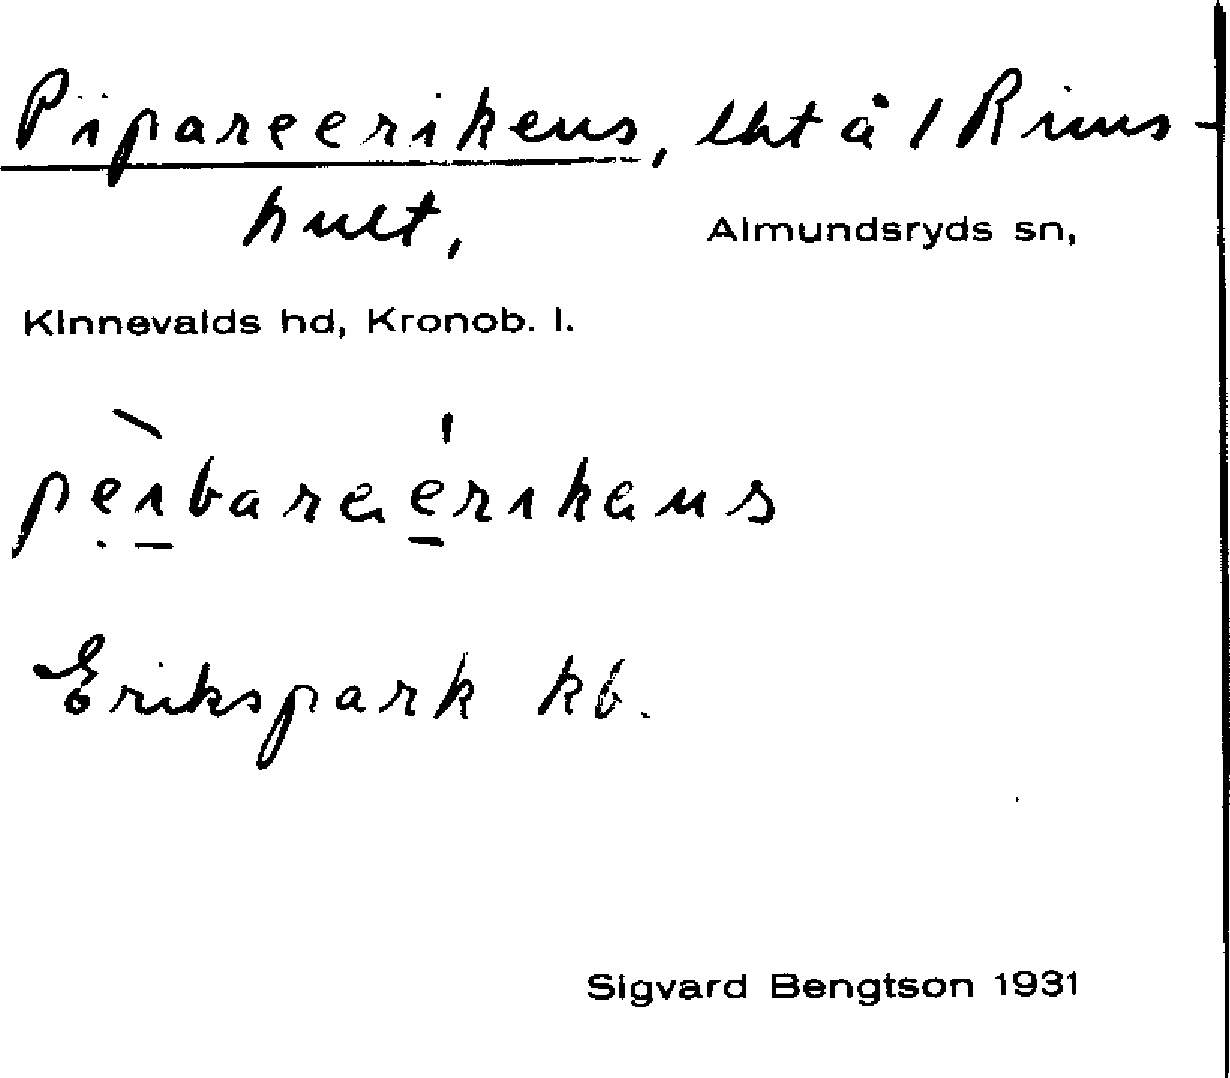 Pipareerikens, lht å 1 Rims-
hult, Almundsryds sn,
Kinnevalds hd, Kronob. l.
pèibaraérikans
Erikspark kb.
Sigvard Bengtson 1931